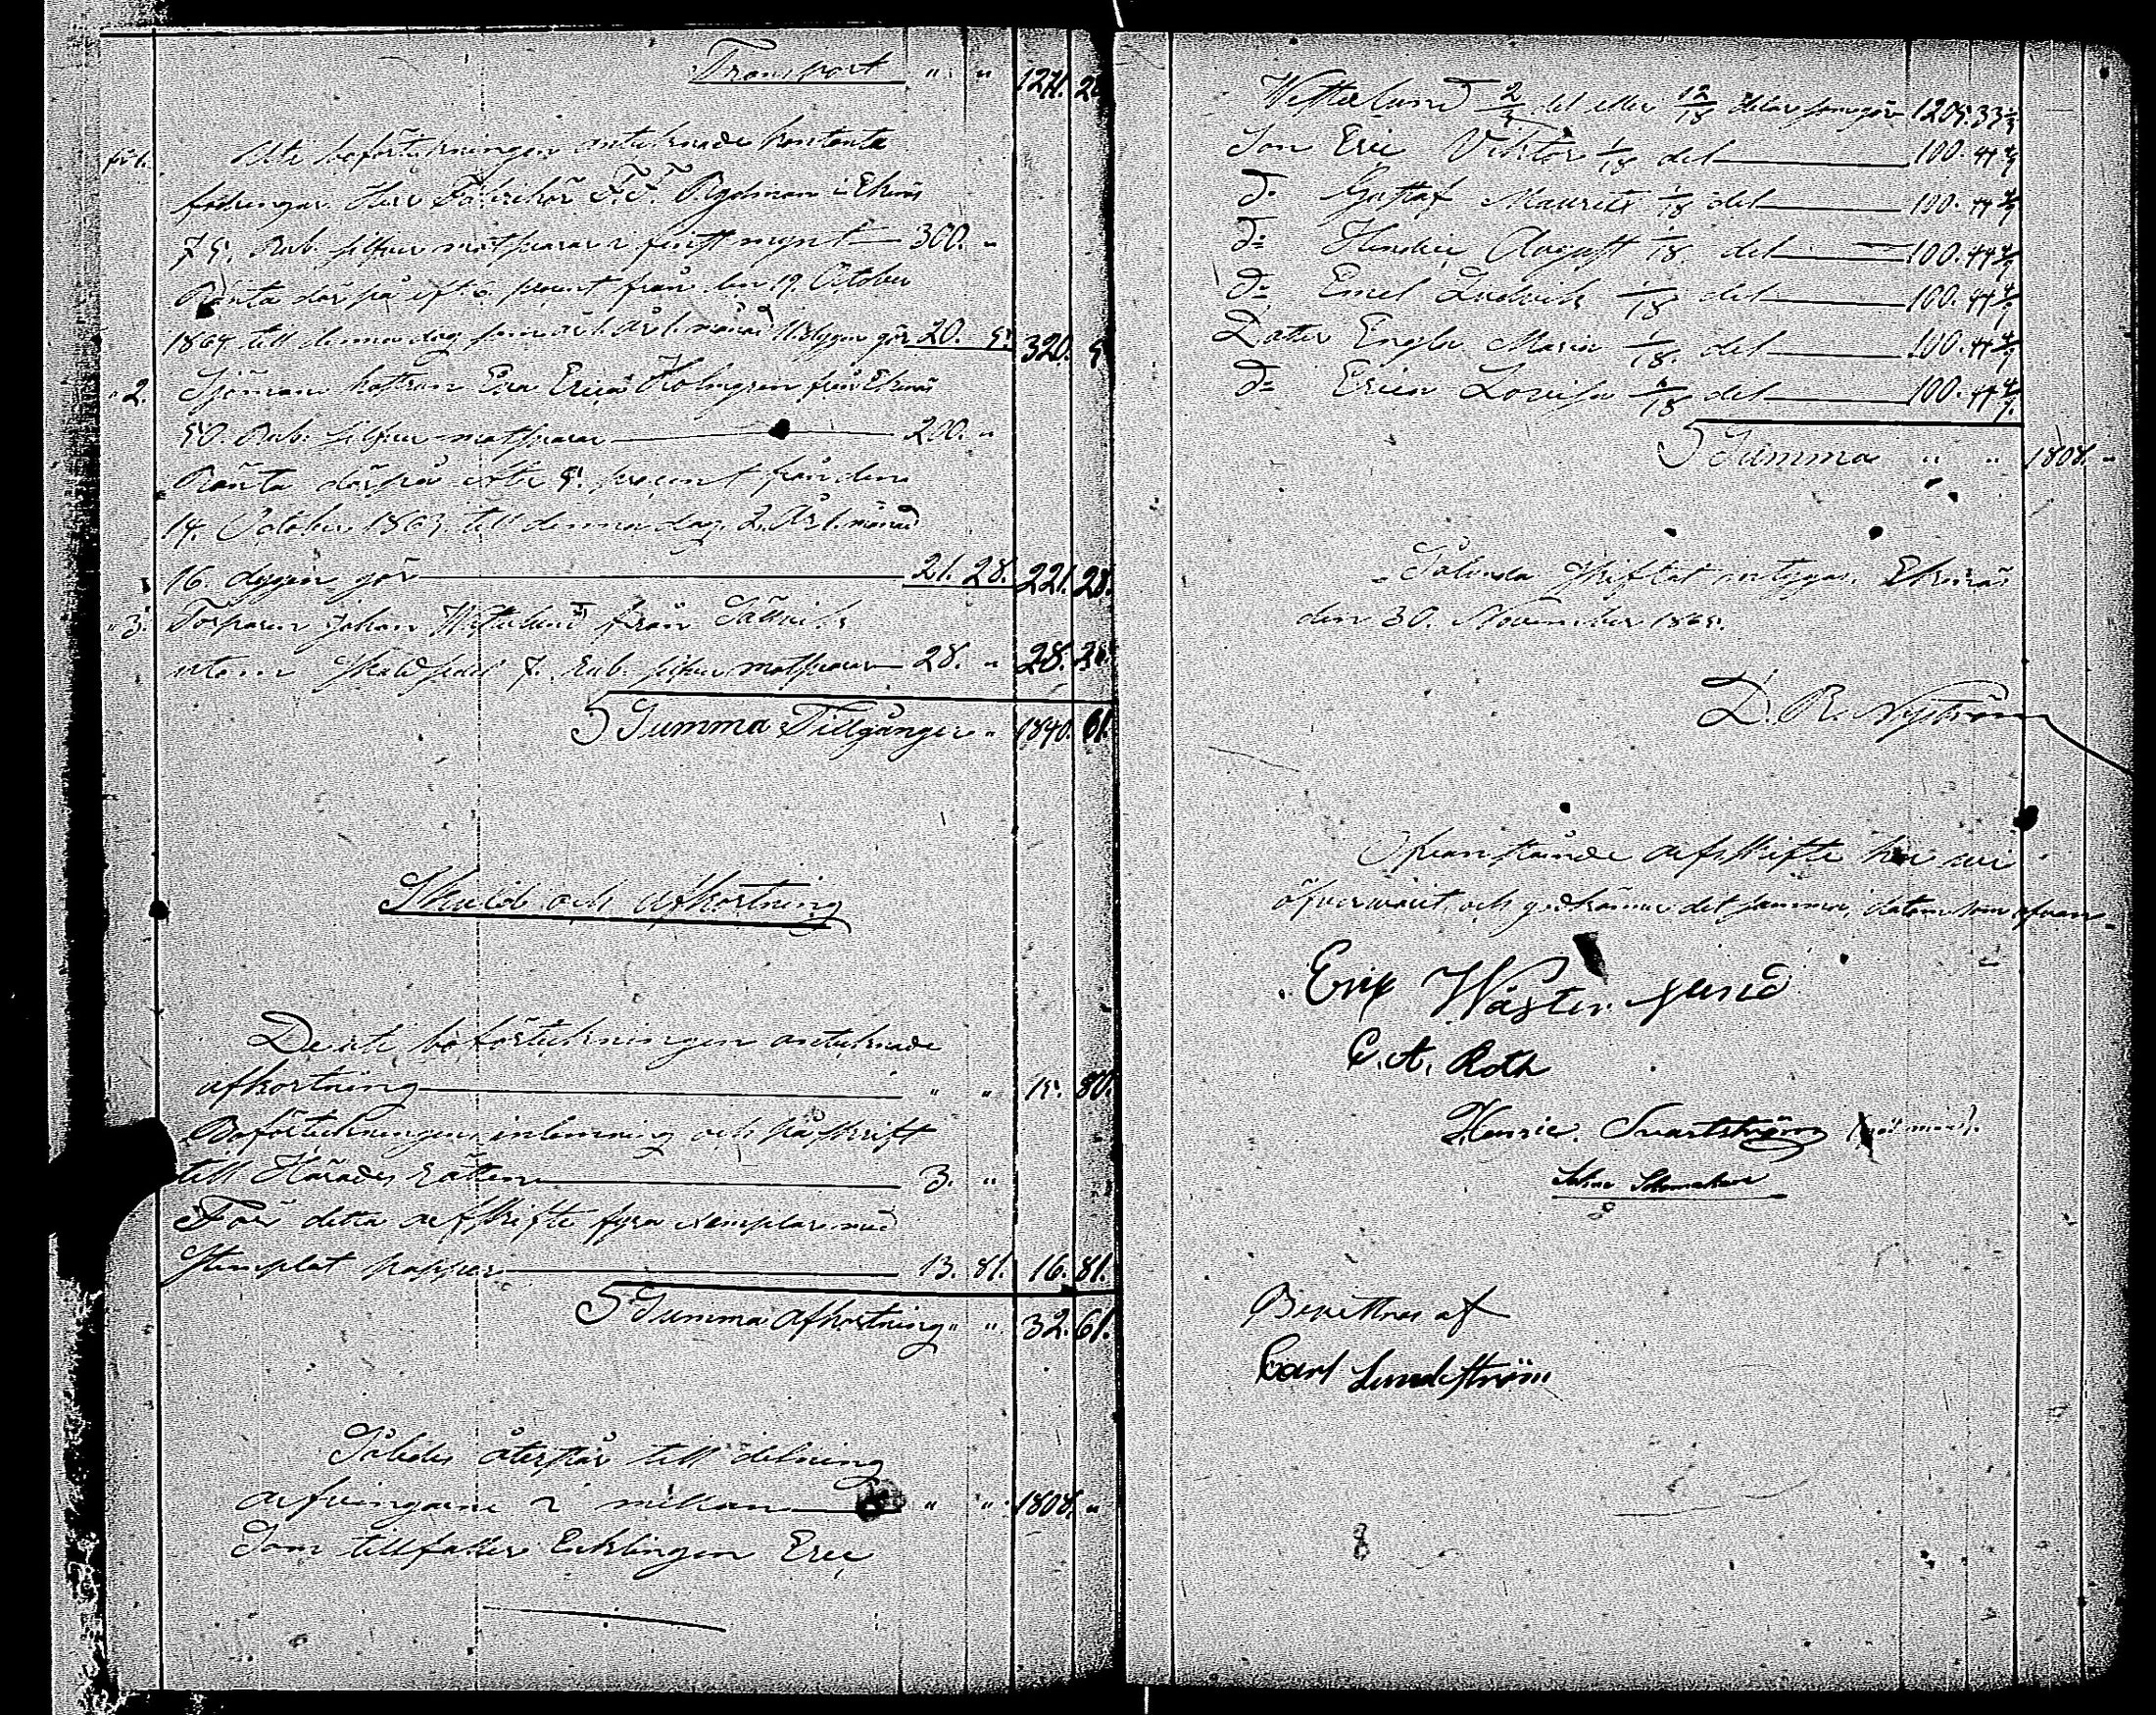 Transport " " 1271. 2
för 1. Uti boförtekningen anteknade kontanta
fodringar. Herr Fabrikör F. F. i Ekenäs
75. Rub. silfver motsvarar i finskt mynt 300. "
Ränta därpå eft. 6. procent från den 19 October
1864 till denna dag som är 1. år 1. månad 11 dygn gör 20. 5. 320. 5
" 2. Sjömans hustrun Eva Erica Holmgren från Ekenäs
50. Rub. silfver motsvarar 200. "
Ränta därpå efter 5. procent från den
14. October 1863 till denna dag, 2. År 1. månad
16. dygn gör 21. 28. 221. 28.
" 3. Torparen Johan Westerlund från
utom 7. Rub. silfver motsvarar 28. " 28.
Summa Tillgångar " 1840. 61.
Skuld och afkortning
De uti boförtekningen anteknade
afkortning " " 15. 80.
Boförtekningens inlemning och påskrift
till Härads Rätten 3. "
För detta arfskifte fyra exemplar med
stemplat papper 13. 81. 16. 81.
Summa afkortning " " 32. 61.
Således återstår till delning
arfvingarne i mellan " " 1808. "
Som tillfaller Enklingen Eric
Westerlund 2/3 del eller 12/18 delar som gör 1205. 33 1/3
Son Eric Viktor 1/18 del 100. 44 4/9
Do Gustaf Maurits 1/18 del 100. 44 4/9
Do Hendric August 1/18 del 100. 44 4/9
Do Emel Ludvik 1/18 del 100. 44 4/9
Dotter Engla Maria 1/18 del 100. 44 4/9
Do Erica Lovisa 1/18 del 100. 44 4/9.
Summa " " 1808. "
Sålunda skiftat intygar. Ekenäs
den 30. November 1865.
D. R. Nyström
Ofvanstående arfskifte har wi
öfverwarit, och godkänna det samma, datum som ofvan
Erik Wäster lund
C. A. Roth
Henric. Svartström
Bevittnas af
Carl Lundström